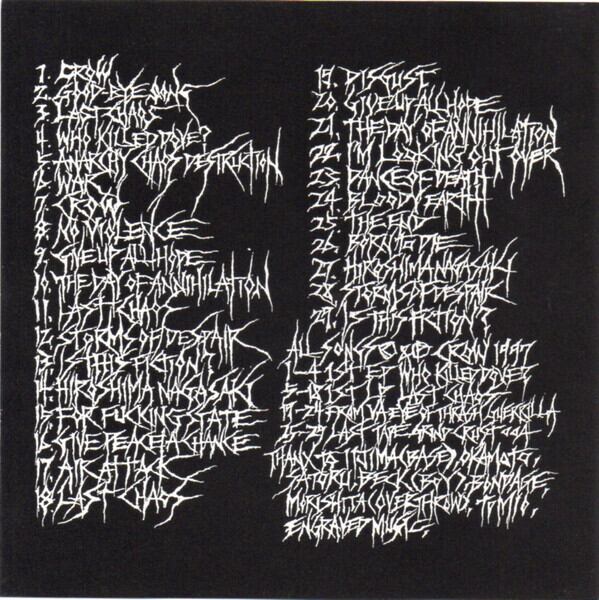 1. CROW
2. GOOD BYE SONG
3. LAST CHAOS
4. WHO KILLED DOVE?
5. ANARCHY CHAOS DESTRUCTION
6. WAR
7. CROW
8. NO VIOLENCE
9. GIVE UP ALL HOPE
10. THE DAY OF ANNIHILATION
11. LAST CHAOS
12. STORMS OF DESPAIR
13. IS THIS FICTION?
14. HIROSHIMA NAGASAKI
15. FOR FUCKING STATE
16. GIVE PEACE A CHANCE
17. AIR ATTACK
18. LAST CHAOS
19. DISGUST
20. GIVE UP ALL HOPE
21. THE DAY OF ANNIHILATION
22. I'M LOOKING OUT OVER
23. DANCE OF DEATH
24. BLOODY EARTH
25. THE END
26. BORN TO DIE
27. HIROSHIMA NAGASAKI
28. STORMS OF DESPAIR
29. IS THIS FICTION?
ALL SONGS © & ℗ CROW 1997
1-4 1ST EP WHO KILLED DOVE?
LAST CHAOS
19-24 FROM V.A EYE OF THRASH GUERRILLA
25-29 LAST TAPE GRIND CRUST
THANX TO IIJIMA (BASE), OKAMOTO,
SATORU, BECK (BOY), BONDAGE,
MORISHITA (OVERTHROW), TOMIO,
ENGRAVED MUSIC.